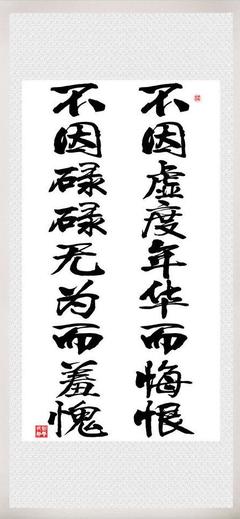 不因虚度年华而悔恨
不因碌碌无为而羞愧